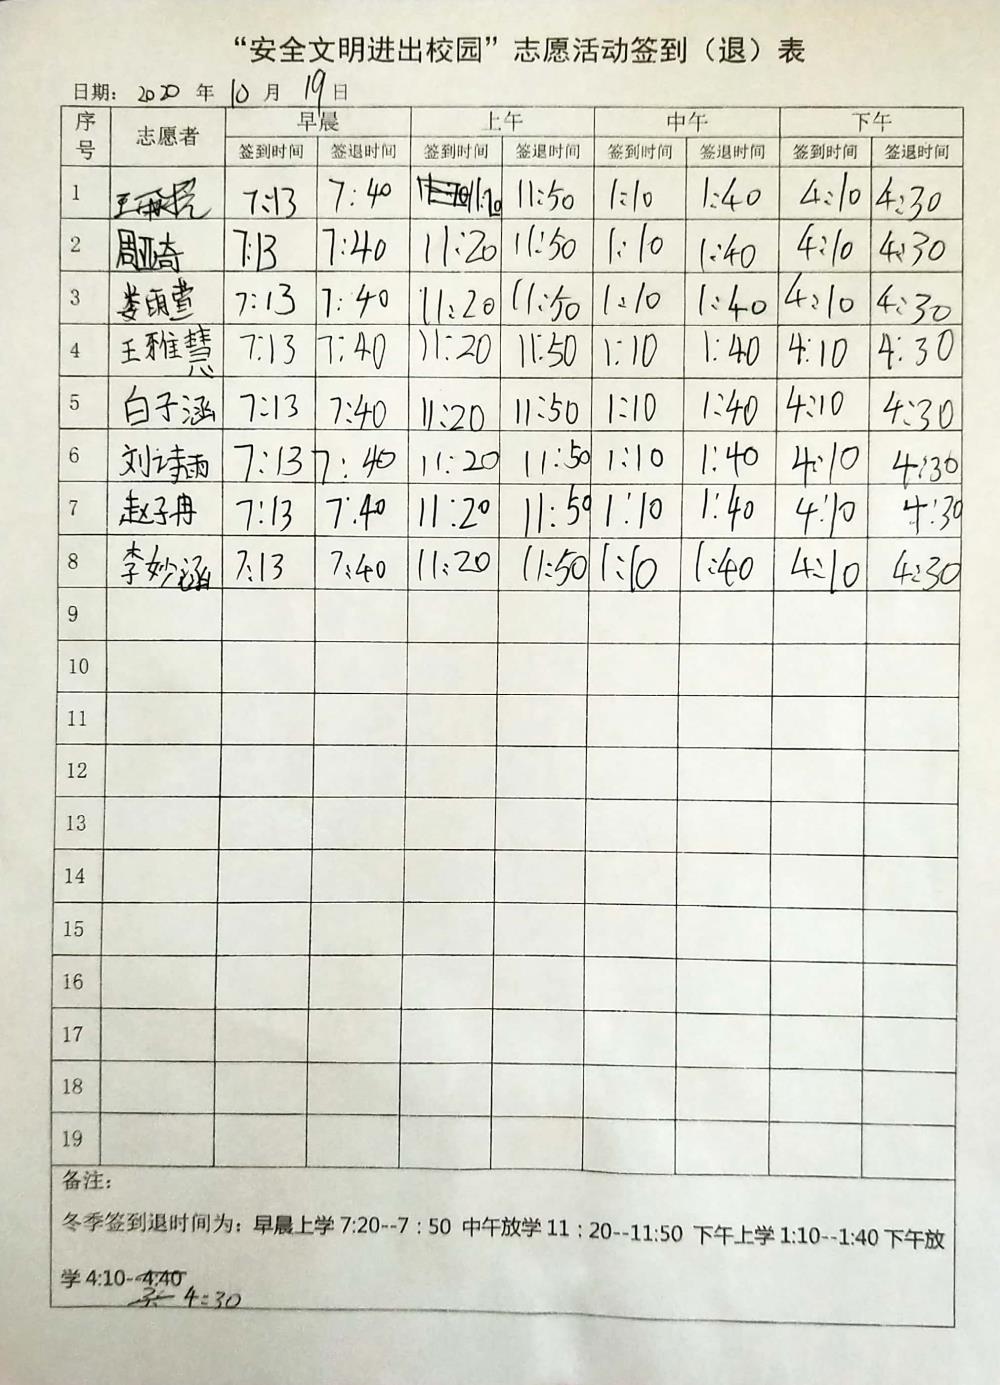 “安全文明进出校园”志愿活动签到（退）表
日期： 2020 年 10 月 19 日
序号 志愿者 早晨 上午 中午 下午
签到时间 签退时间 签到时间 签退时间 签到时间 签退时间 签到时间 签退时间
1 7:13 7:40 11:20 11:50 1:10 1:40 4:10 4:30
2 周亚奇 7:13 7:40 11:20 11:50 1:10 1:40 4:10 4:30
3 娄雨萱 7:13 7:40 11:20 11:50 1:10 1:40 4:10 4:30
4 王雅慧 7:13 7:40 11:20 11:50 1:10 1:40 4:10 4:30
5 白子涵 7:13 7:40 11:20 11:50 1:10 1:40 4:10 4:30
6 刘诗雨 7:13 7:40 11:20 11:50 1:10 1:40 4:10 4:30
7 赵子冉 7:13 7:40 11:20 11:50 1:10 1:40 4:10 4:30
8 李妙涵 7:13 7:40 11:20 11:50 1:10 1:40 4:10 4:30
9
10
11
12
13
14
15
16
17
18
19
备注：
冬季签到退时间为：早晨上学 7:20--7：50 中午放学 11：20--11:50 下午上学 1:10--1:40 下午放
学 4:10--4:40
4:30